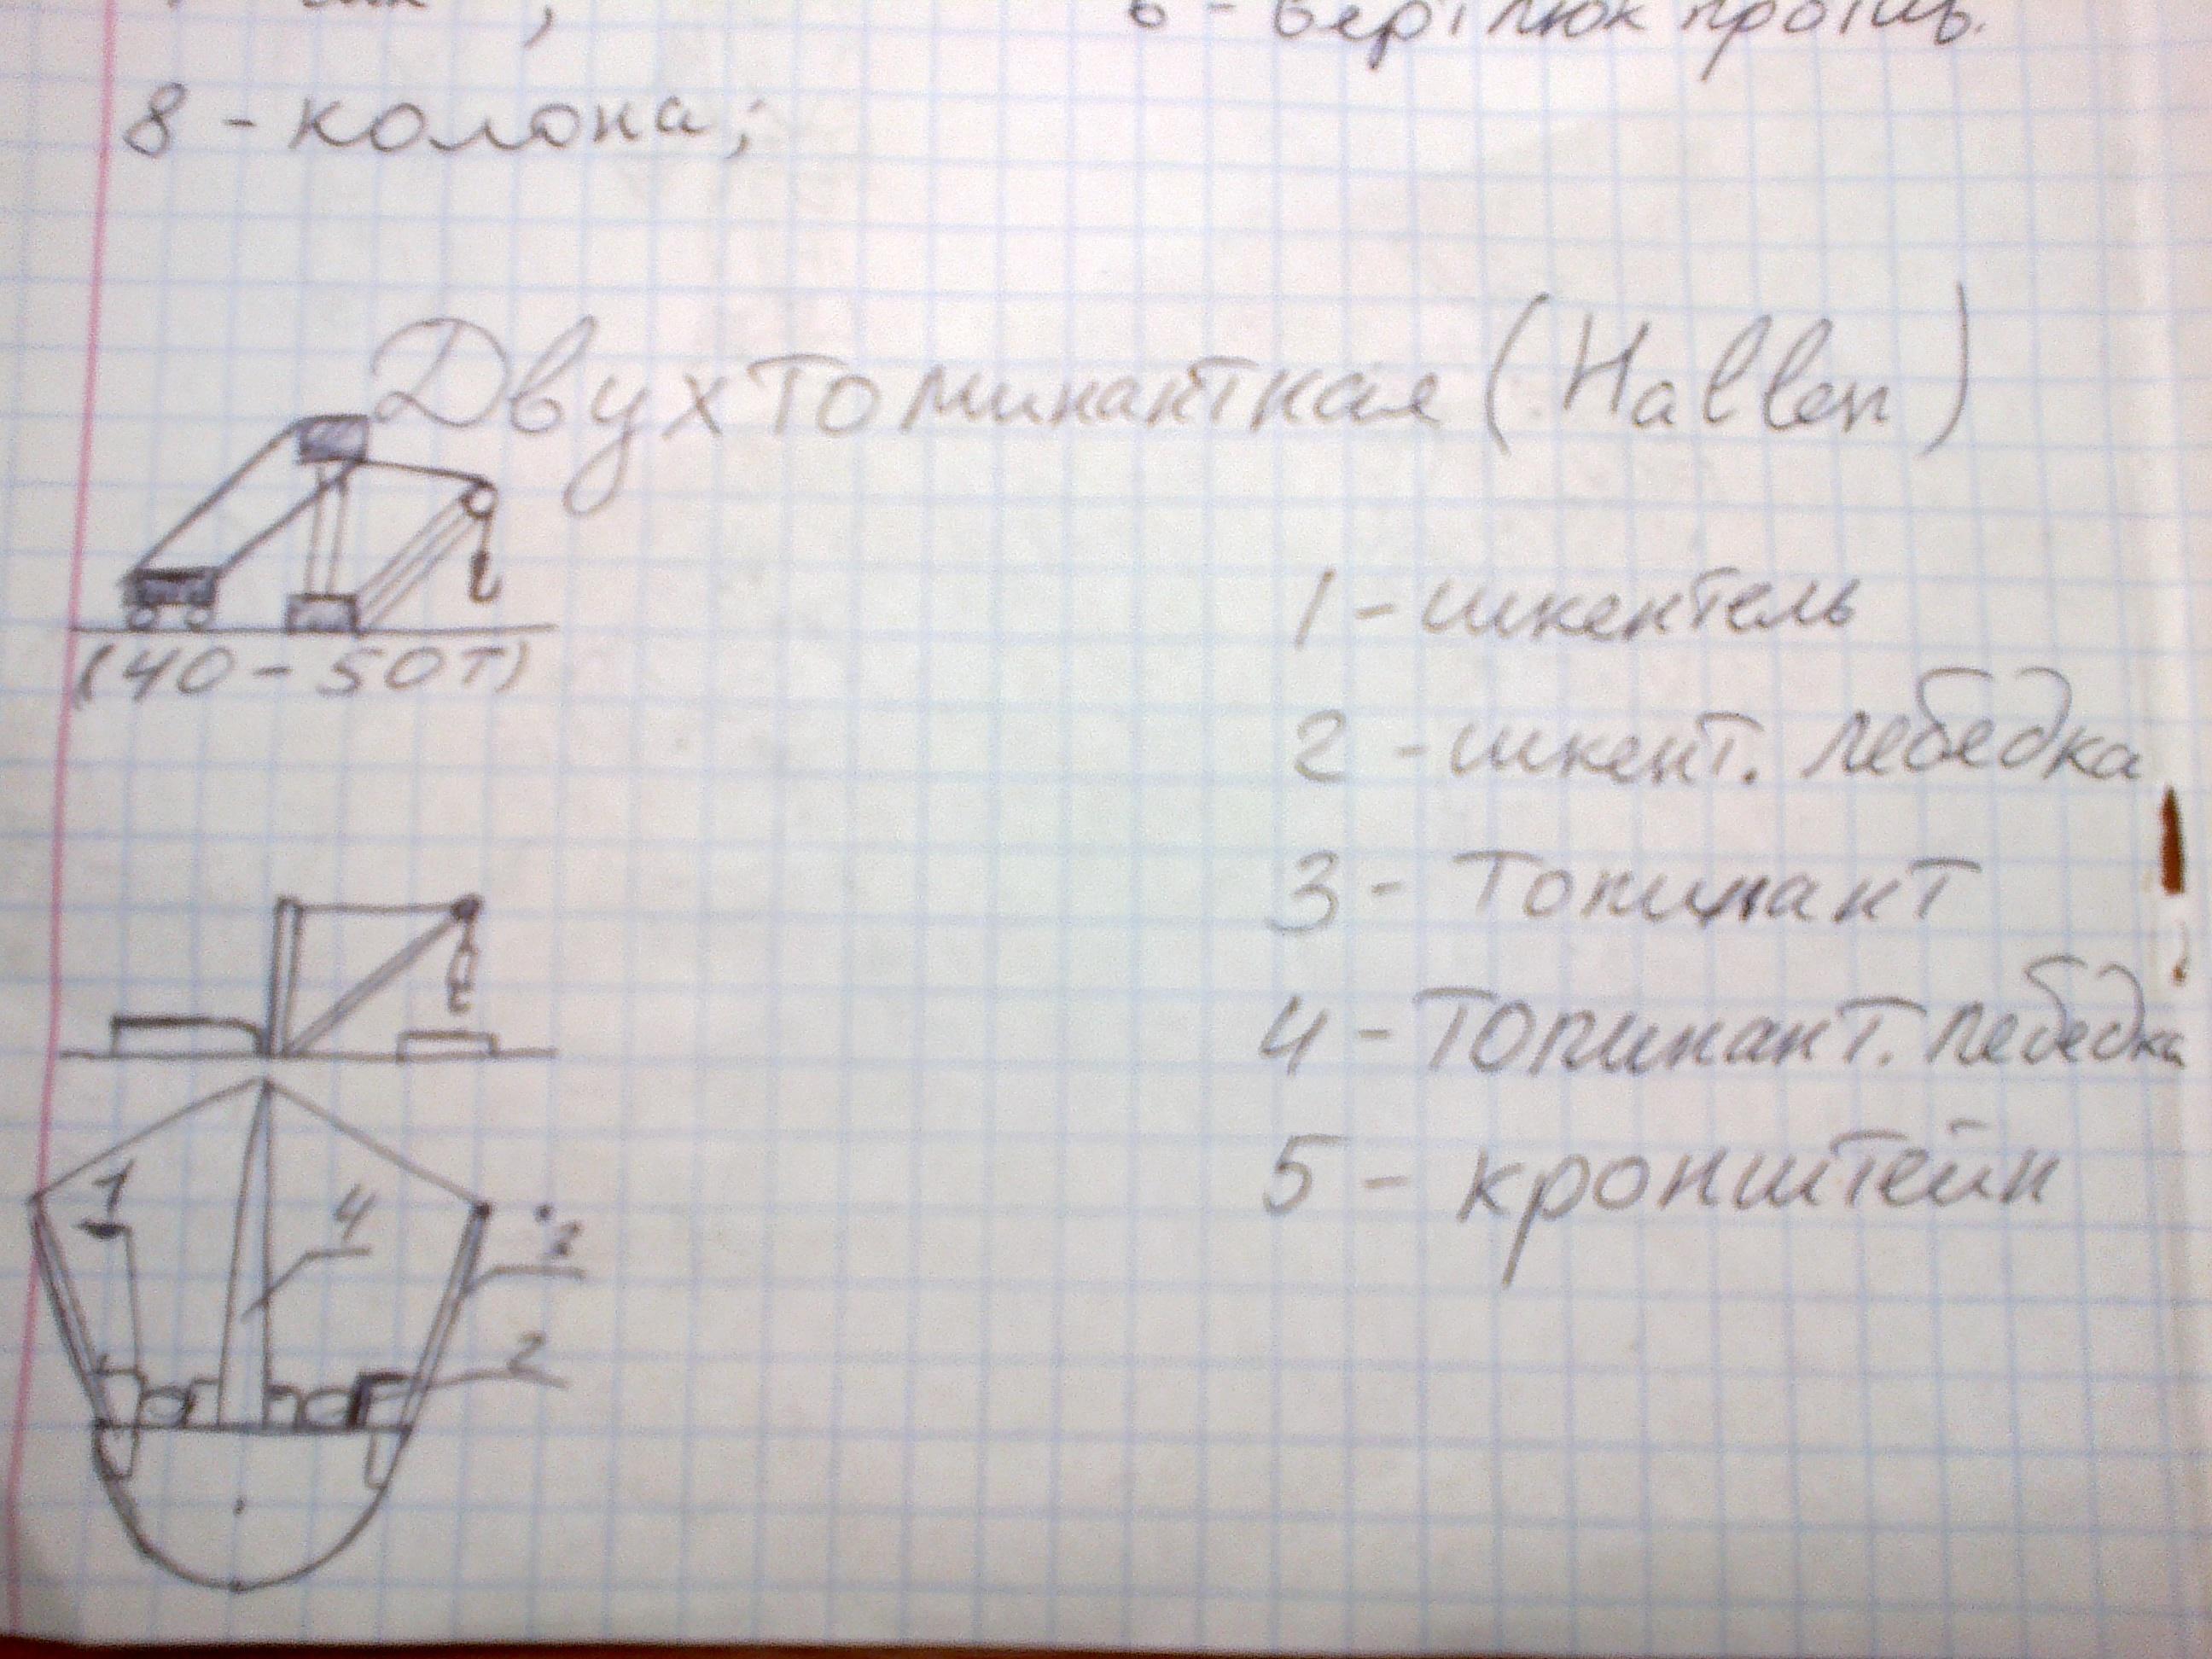 6 - вертлюк против.
8 - колона;
Двухтопинанткая (Hallen)
(40 - 50т)
1 - шкентель
2 - шкент. лебедка
3 - топинант
4 - топинант. лебедка
5 - кронштейн
1
4
2